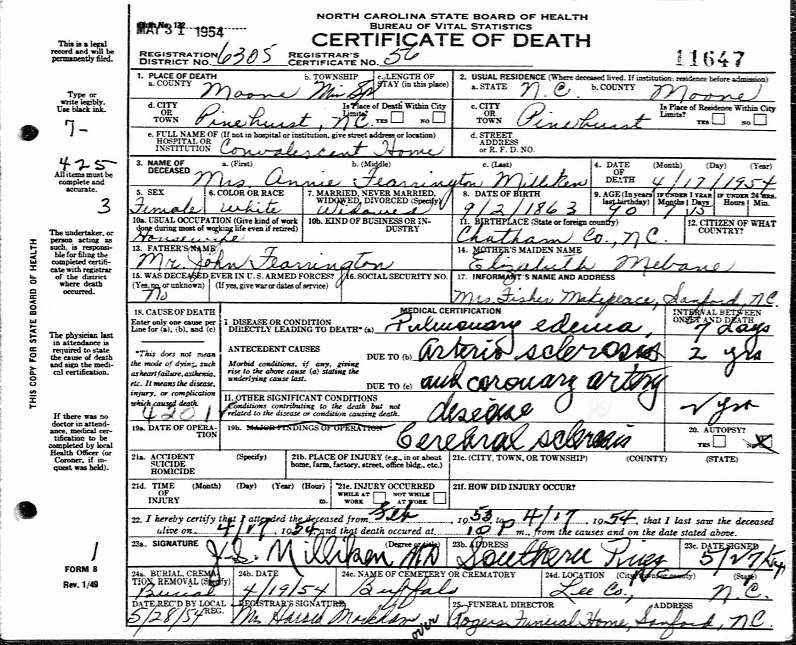 NORTH CAROLINA STATE BOARD OF HEALTH
BUREAU OF VITAL STATISTICS
CERTIFICATE OF DEATH
MAY 31 1954
REGISTRATION DISTRICT NO. 6305 REGISTRAR'S CERTIFICATE NO. 56
11647
This is a legal record and will be permanently filed.
Type or write legibly. Use black ink.
7-
425
All items must be complete and accurate.
3
The undertaker, or person acting as such, is responsible for filing the completed certificate with registrar of the district where death occurred.
The physician last in attendance is required to state the cause of death and sign the medical certification.
If there was no doctor in attendance, medical certification to be completed by local Health Officer (or Coroner, if inquest was held).
THIS COPY FOR STATE BOARD OF HEALTH
1
FORM 8
Rev. 1/49
1. PLACE OF DEATH
a. COUNTY Moore
b. TOWNSHIP
c. LENGTH OF STAY (in this place)
2. USUAL RESIDENCE (Where deceased lived. If institution: residence before admission)
a. STATE N.C. b. COUNTY Moore
d. CITY OR TOWN Pinehurst, N.C.
Is Place of Death Within City Limits? YES NO
c. CITY OR TOWN Pinehurst
Is Place of Residence Within City Limits? YES NO
e. FULL NAME OF HOSPITAL OR INSTITUTION (If not in hospital or institution, give street address or location) Convalescent Home
d. STREET ADDRESS OR R. F. D. NO.
3. NAME OF DECEASED a. (First) b. (Middle) c. (Last)
Mrs Annie Fearrington Milliken
4. DATE OF DEATH (Month) (Day) (Year) 4/17/1954
5. SEX Female
6. COLOR OR RACE White
7. MARRIED, NEVER MARRIED, WIDOWED, DIVORCED (Specify) Widowed
8. DATE OF BIRTH 9/2/1863
9. AGE (In years last birthday) 90 IF UNDER 1 YEAR Months 7 Days 15 IF UNDER 24 HRS. Hours Min.
10a. USUAL OCCUPATION (Give kind of work done during most of working life, even if retired) Housewife
10b. KIND OF BUSINESS OR INDUSTRY
11. BIRTHPLACE (State or foreign country) Chatham Co., N.C.
12. CITIZEN OF WHAT COUNTRY?
13. FATHER'S NAME Mr John Fearrington
14. MOTHER'S MAIDEN NAME Elizabeth Mebane
15. WAS DECEASED EVER IN U. S. ARMED FORCES? (Yes, no or unknown) (If yes, give war or dates of service) No
16. SOCIAL SECURITY NO.
17. INFORMANT'S NAME AND ADDRESS Mrs. Fisher Makepeace, Sanford, N.C.
18. CAUSE OF DEATH
Enter only one cause per Line for (a), (b), and (c)
*This does not mean the mode of dying, such as heart failure, asthenia, etc. It means the disease, injury, or complication which caused death.
4201
MEDICAL CERTIFICATION
INTERVAL BETWEEN ONSET AND DEATH
I DISEASE OR CONDITION DIRECTLY LEADING TO DEATH* (a) Pulmonary edema, 7 days
ANTECEDENT CAUSES
Morbid conditions, if any, giving rise to the above cause (a) stating the underlying cause last.
DUE TO (b) Arterio sclerosis 2 yrs
DUE TO (c) and coronary artery
disease
II. OTHER SIGNIFICANT CONDITIONS
Conditions contributing to the death but not related to the disease or condition causing death.
Cerebral sclerosis
19a. DATE OF OPERATION
19b. MAJOR FINDINGS OF OPERATION
20. AUTOPSY? YES NO X
21a. ACCIDENT SUICIDE HOMICIDE (Specify)
21b. PLACE OF INJURY (e.g., in or about home, farm, factory, street, office bldg., etc.)
21c. (CITY, TOWN, OR TOWNSHIP) (COUNTY) (STATE)
21d. TIME OF INJURY (Month) (Day) (Year) (Hour) m.
21e. INJURY OCCURRED WHILE AT WORK NOT WHILE AT WORK
21f. HOW DID INJURY OCCUR?
22. I hereby certify that I attended the deceased from Feb 1953 to 4/17 1954, that I last saw the deceased
alive on 4/17 1954 and that death occurred at 10 P m., from the causes and on the date stated above.
23a. SIGNATURE (Degree or title) J.S. Milliken MD
23b. ADDRESS Southern Pines
23c. DATE SIGNED 5/27/54
24a. BURIAL, CREMATION, REMOVAL (Specify) Burial
24b. DATE 4/19/54
24c. NAME OF CEMETERY OR CREMATORY Buffalo
24d. LOCATION (City, town, or county) (State) Lee Co., N.C.
DATE REC'D BY LOCAL REG. 5/28/54
REGISTRAR'S SIGNATURE Mrs Harold Markham
over
25. FUNERAL DIRECTOR ADDRESS
Rogers Funeral Home, Sanford, N.C.